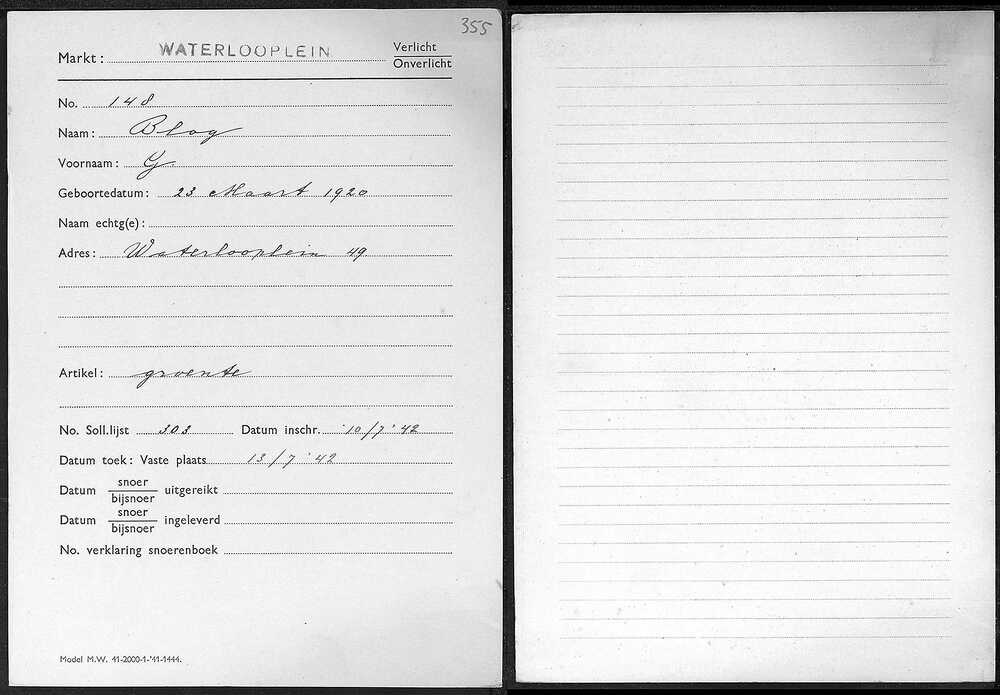 355
Markt: WATERLOOPLEIN Verlicht
Onverlicht
No. 148
Naam: Blog
Voornaam: G
Geboortedatum: 23 Maart 1920
Naam echtg(e):
Adres: Waterlooplein 49
Artikel: groente
No. Soll.lijst 303 Datum inschr. 10/7 '42
Datum toek: Vaste plaats 13/7 '42
Datum snoer/bijsnoer uitgereikt
Datum snoer/bijsnoer ingeleverd
No. verklaring snoerenboek
Model M.W. 41-2000-1-'41-1444.